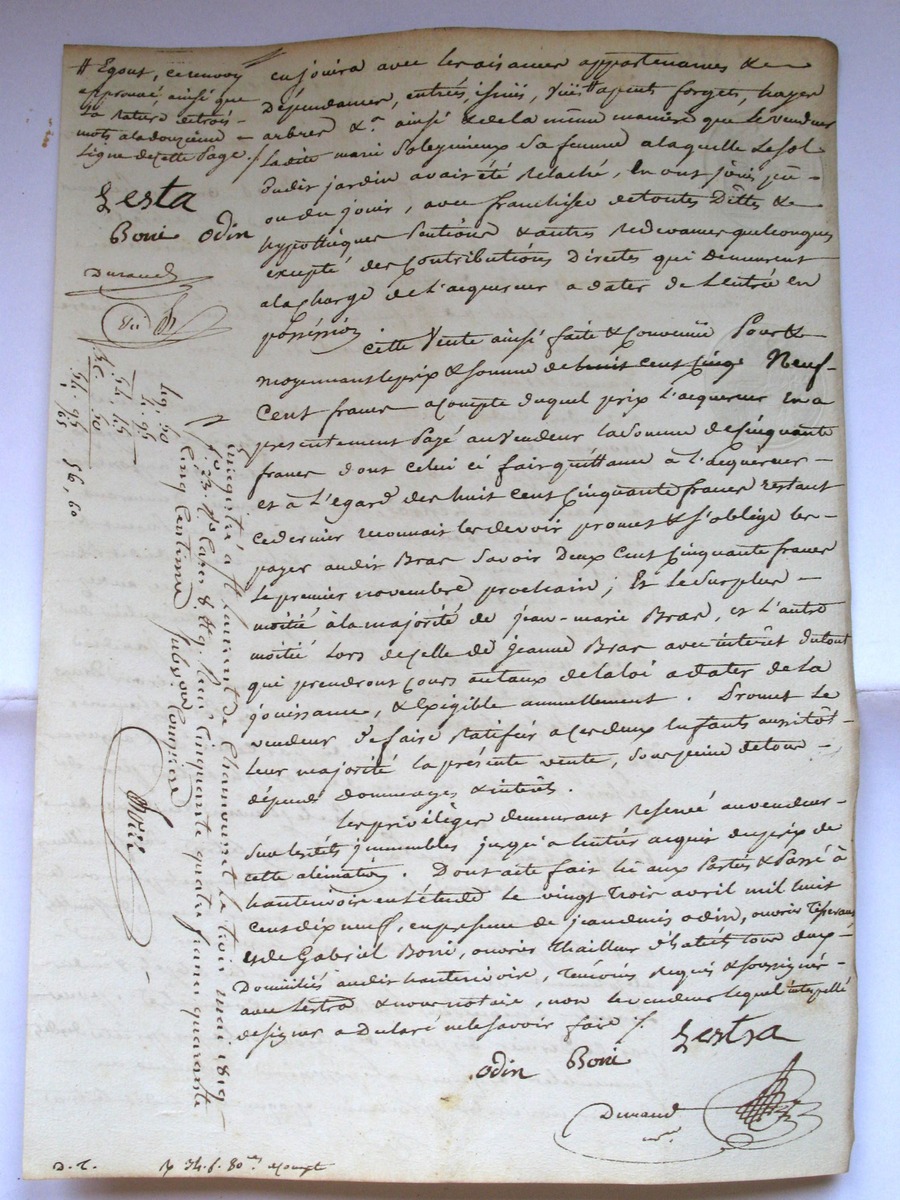 # Egout, ce renvoy
approuvé, ainsi que
la rature de trois
mots a la douzieme
Ligne de cette Page ./.
Lestra
Boni Odin
Durand
en jouira avec les aisances appartenances &
Dépendances, entrées, issues,
arbres &a ainsi & de la même maniere que le vendeur
Ladite marie Soleymieux Sa femme a laquelle Le sol
dudit jardin avait été relaché, En ont jouis pu
ou du jouir, avec franchise de toutes Dettes &
hypothèques pentions & autres Redevances quelconques
excepté des Contributions Directes qui demeurent
a la charge de L'acquereur a dater de L'entrée en
possession
Cette Vente ainsi faite & Convenue Pour &
moyennant le prix & somme de huit cent Cinq Neuf
Cent francs acompte duquel prix L'acquereur En a
presentement Payé au Vendeur la Somme de Cinquante
francs dont celui ci fait quittance à L'acquereur
et à L'égard des huit cent Cinquante francs restant
ce dernier reconnait les devoir promet & s'oblige les
payer audit Bras Savoir Deux Cent Cinquante francs
Le premier novembre prochain ; Et le Surplus
moitié à la majorité de jean-marie Bras, et L'autre
moitié Lors de celle de Jeanne Bras avec interêt du tout
qui prendront Cours au taux de la loi a dater de La
jouissance, & Exigible annuellement . Promet Le
vendeur de faire Ratifier a ces deux Enfants aussitôt
leur majorité la présente vente, sous peine de tous
dépends dommages & interêts .
Les privilèges demeurant Reservé au vendeur
Sur lesdits jmmeubles jusqu'a L'entier acquit du prix de
cette alienation . Dont acte fait lû aux Parties & Passé à
hauterivoire en L'étude Le vingt trois avril mil huit
Cent dix neuf, en presence de jean denis Odin, ouvrier Tisserand
& de Gabriel Boni, ouvrier Thailleur d'habits tous deux
Domiciliés audit hauterivoire, Temoins Requis & soussignés
avec Lestra & nous notaire, non le vendeur lequel interpellé
de signer a Declaré ne le savoir faire ./.
Lestra
Odin Boni
Durand
Enregistré à St Laurent de Chamousset le trois mai 1819
Reçu Cinquante quatre francs quarante
Cinq Centimes Subvon Comprise
49. 50
4. 95
54. 45
54. 95
56, 60
D. T.